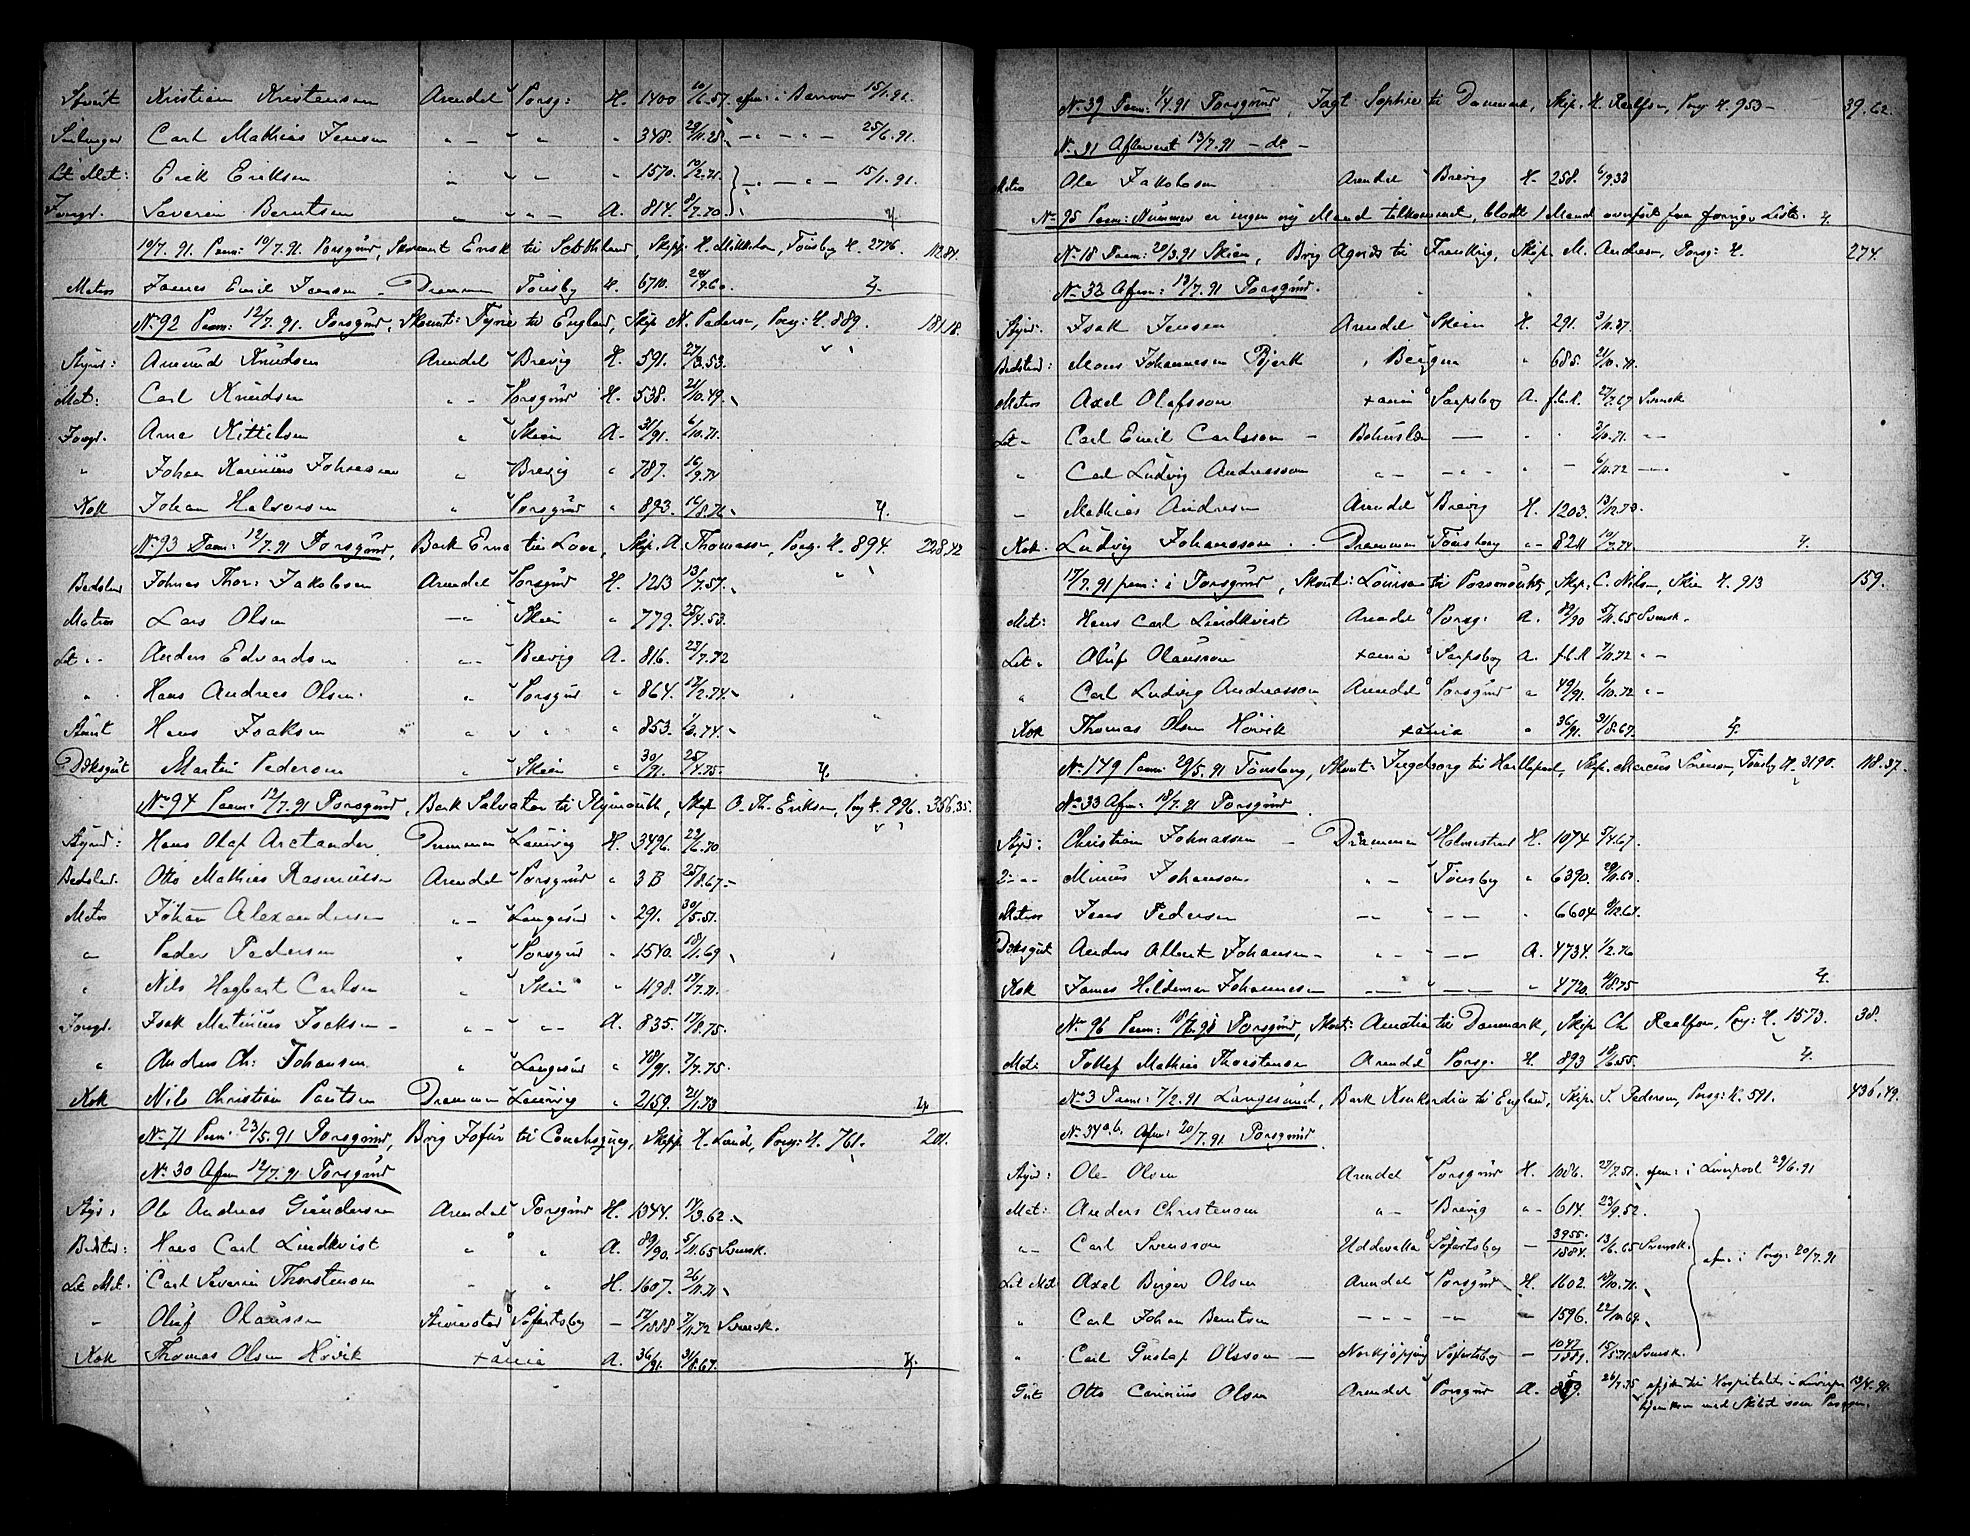 Kristian Kristensen Arendal Porsg: H. 1400 afm: i Barrow 15/1.91.
Carl Mathias Jensen " - " " " 348. 29/11.28 - " - " - 25/6.91.
Let Mat: Erik Eriksen " " - " 1570. 10/2.71. 15/1.91.
Jungd. Severin Berntsen " " - " A. 814. 8/7.70.
10/7.91. Paam: 10/7.91. Porsgrund, Skonnert Ensk til Skotland, Skipp. H. Mikkelsen, Tønsby H. 2776. 112.84.
Matros James Emil Jansen Drammen Tønsby H. 6710.
No. 92 Paam: 12/7.91. Porsgrund, Skonnt: Tyrie til England, Skip. N. Pedersen, Porsg: H. 889. 181.18.
Styrm: Amund Knudsen Arendal Brevig H. 591. 27/3.53.
Mat: Carl Knudsen " - Porsgrund H. 538. 21/10.49.
Jungd. Arne Kittilsen " Skien A. 31/91. 6/10.71.
" Johan Johansen " Brevig " 787. 16/9.74
Kok Johan Halvorsen " Porsgrund " 893. 16/8.76
No. 93 Paam: 12/7.91 Porsgrund, Bark Erna til Skip. A. Thomassen, Porsg. H. 894. 228.42
Johnas Thor: Jakobsen Arendal Porsgrund H. 1253 13/7.57.
Matros Lars Olsen - " Skien " 779. 25/4.53.
Let " - Anders Edvardsen " - Brevig A. 816. 23/7.72
" Hans Andreas Olsen. " Porsgrund " 864. 12/2.74.
Hans Isaksen " " " 853.
Dæksgut Martin Pedersen " Skien 30/91. 25/4.75.
No. 94 Paam: 12/7.91 Porsgrund, Bark Salvator til Plymouth, Skip O. Th. Eriksen, Porsg H. 996. 356.35.
Styrm: Hans Olaf Arctander Drammen Laurvig H. 3496. 22/6.70
Bedstm. Otto Mathias Rasmussen Arendal Porsgrund " 3 B 25/8.67.
Matros Johan Alexandersen " - Langesund " 291. 30/5.51.
" Peder Pedersen " Porsgrund " 1540. 18/1.69
" Nils Hagbart Carlsen " Skien " 498. 17/7.71.
Jungd. Isak Martinius Isaksen " - " - A. 835. 17/8.75.
" Anders Ch: Johansen " Langesund " 48/91. 2/7.75.
Kok Nils Christian Paulsen Drammen Laurvig " 2159. 21/1.73
No. 71 Paam: 23/5.91 Porsgrund, Brig Jofur til Skipp. H. Lund, Porsg: H. 761. 201.
No. 30 Afm 12/7.91 Porsgrund
Styr: Ole Andreas Gundersen Arendal Porsgrund H. 1344. 14/3.62.
Hans Carl Lindkvist " " A. 89/90. 5/11.65 Svensk.
Let Mat: Carl Severin Thorstensen " " H. 1607. 26/11.71
" Oluf Olaussen Sofartsby - 12/1888 7/11.72 Svensk.
Kok Thomas Olsen Høvik Xania A. 36/91. 31/8.67.
No. 39 Paam: 1/4.91 Porsgrund, Jagt Sophie til Danmark, Skip. H. Realfsen, Porsg H. 953 - 39.62.
No. 31 Afleveret 13/7.91 - do -
Matros Ole Jakobsen Arendal Brevig H. 258. 6/9.33
No. 95 Paam: Nummer er ingen ny Mand tilkommet, blodt 1 Mand overført fra forrige Liste.
No. 18 Paam: 20/3.91 Skien, Brig Agnes til Frankrig, Skip. M. Andresen, Porsg: H. 274.
No. 32 Afm: 17/7.91 Porsgrund.
Styrm: Isak Jensen Arendal Skien H. 291. 3/11.37.
Bedstm: Mons Johannesen Bjerk " Bergen " 685. 21/10.71.
Matros Axel Olafsson Xania Sarpsborg A. f.b.N. 27/2.67 Svensk
Let - Carl Emil Carlsson - Bohuslen - " " 3/10.71. " -
" Carl Ludvig Andreasson " - - " - " - 6/11.72 - " -
- Mathias Andresen Arendal Brevig H. 1203. 13/12.73.
Kok. Ludvig Johansson Drammen Tønsberg " - 8211 10/7.74.
17/7.91 paam: i Porsgrund, Skont: Louise til Skip. C. Nilsen, Skien H. 913 159.
Mat: Hans Carl Lindkvist Arendal Porsg: A. 89/90 5/11.65 Svensk.
Let " Oluf Olausson Xania Sarpsborg A. f.b.N 7/11.72 " -
" Carl Ludvig Andreasson Arendal Porsgrund " 49/91. 6/10.72 " -
Kok Thomas Olsen Høvik Xania " 36/91. 31/8.67.
No. 149 Paam: 29/5.91 Tønsberg, Skont: Ingeborg til Hartlepool, Skip. Marcus Sørensen, Tønsby H. 3190. 118.37.
No. 33 Afm: 18/7.91 Porsgrund.
Styr: Christian Johnassen - Drammen Holmestrand H. 1074 5/4.67.
2: - - Minius Johansen. " - Tønsby " 6390.
Matros Jens Pedersen - " - " - " 6604 9/12.64.
Dæksgut Anders Albert Johansen " - - " - A. 4734. 1/2.76
Kok James Hildemar Johannesen - " - - " - " 4720. 11/8.75
No. 96 Paam: 18/7.91 Porsgrund, Skont: Amalia til Danmark, Skip Ch Realfsen, Porsg: H. 1573. 38.
Mat: Tollef Mathias Thorstensen Arendal Porsg. H. 893 18/6.55.
No. 3 Paam: 7/2.91 Langesund, Bark Konkordia til England, Skip. T. Pedersen, Porsg: H. 591. 436.49.
No. 34 a.b. Afm: 20/7.91 Porsgrund
Styr: Ole Olsen Arendal Porsgrund H. 1086. 27/7.51. afm: i Liverpool 29/6.91
Mat: Anders Christensen " - Brevig " - 614. 23/9.52.
" - Carl Svensson Uddevalla Sofartsby - 3955/1884. 13/6.65 Svensk. afm: i Porsg: 20/7.91
Let Mat Axel Birger Olsen Arendal Porsgrund H. 1602. 18/10.71.
" Carl Johan Berntsen - - - " - " 1596. 22/10.69.
" Carl Gustaf Olsson - Norkjöping Sofartsby - 1047/1889. 15/5.71. Svensk.
Gut Otto Carinius Olsen Arendal Porsgrund A. 26/7.75 til Hospitalet i Liverp 13/4.91.
med Skibet som